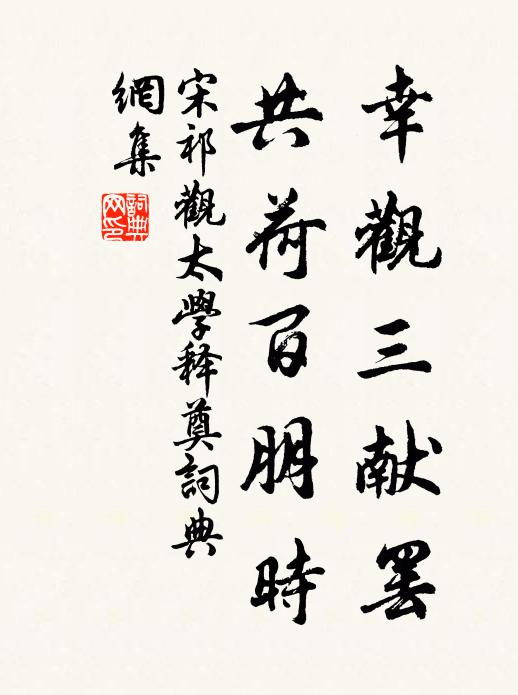 幸觀三献罢
共荷百朋時
宋祁觀太學释奠詞典
網集
詞典
网印